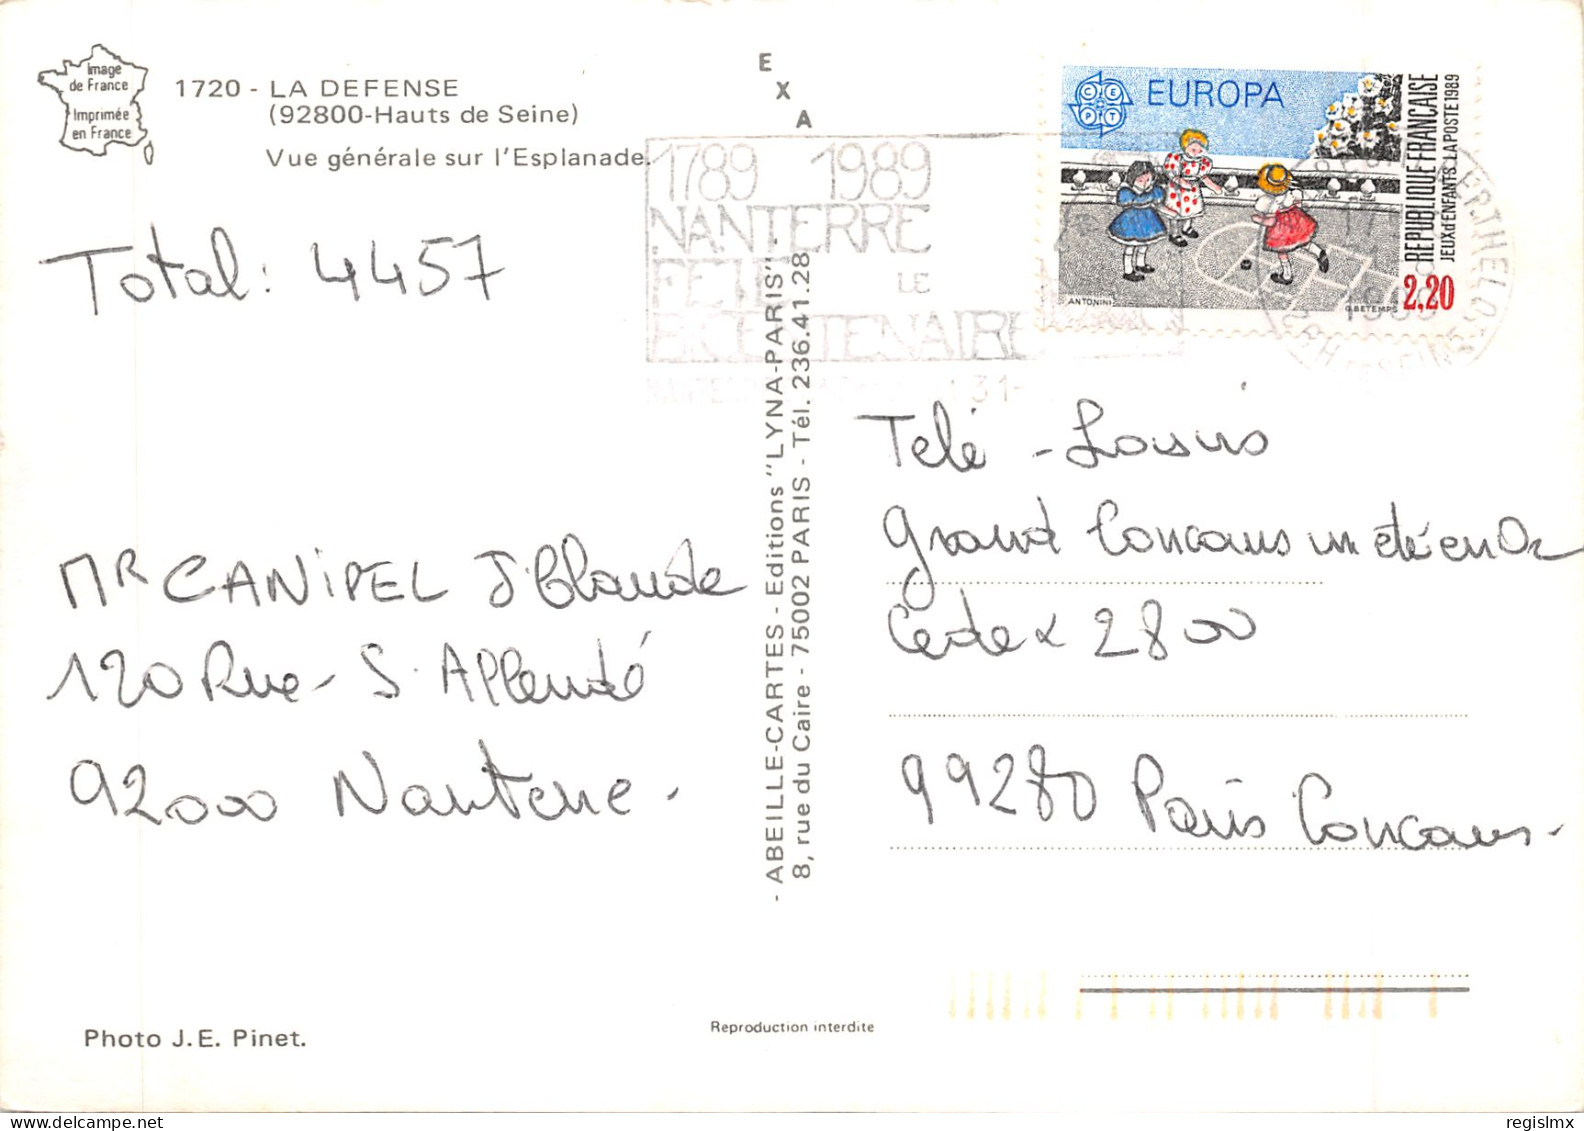 Image
de France
Imprimée
en France
1720 - LA DEFENSE
(92800-Hauts de Seine)
Vue générale sur l'Esplanade.
E
X
A
1789 1989
NANTERRE
FETE LE
BICENTENAIRE
EUROPA
CEPT
ANTONINI
O.BETEMPS
2,20
REPUBLIQUE FRANÇAISE
JEUX d'ENFANTS. LA POSTE 1989
Total: 4457
Télé-Loisirs
Grand Concours un été en Or
Cedex 2800
99280 Paris Concours.
Mr CANIPEL J. Claude
120 Rue - S. Allendé
92000 Nanterre.
- ABEILLE-CARTES - Editions "LYNA-PARIS" -
8, rue du Caire - 75002 PARIS - Tél. 236.41.28
Photo J.E. Pinet.
Reproduction interdite
regislmx